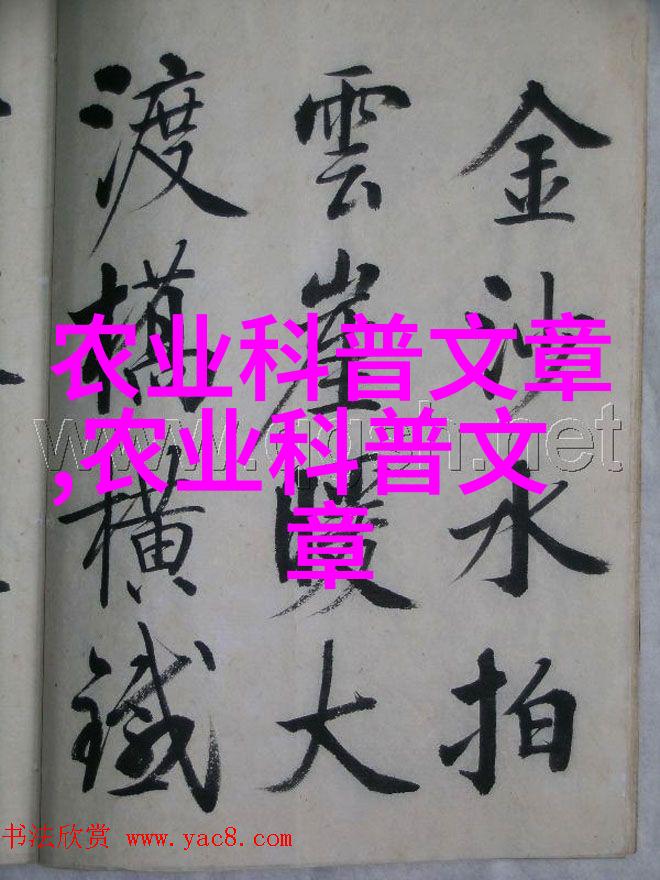 金沙水拍
雲崖暖大
渡橋橫鐵
农业科普文章
,农业科普文
章
书法欣赏 www.yac8.com